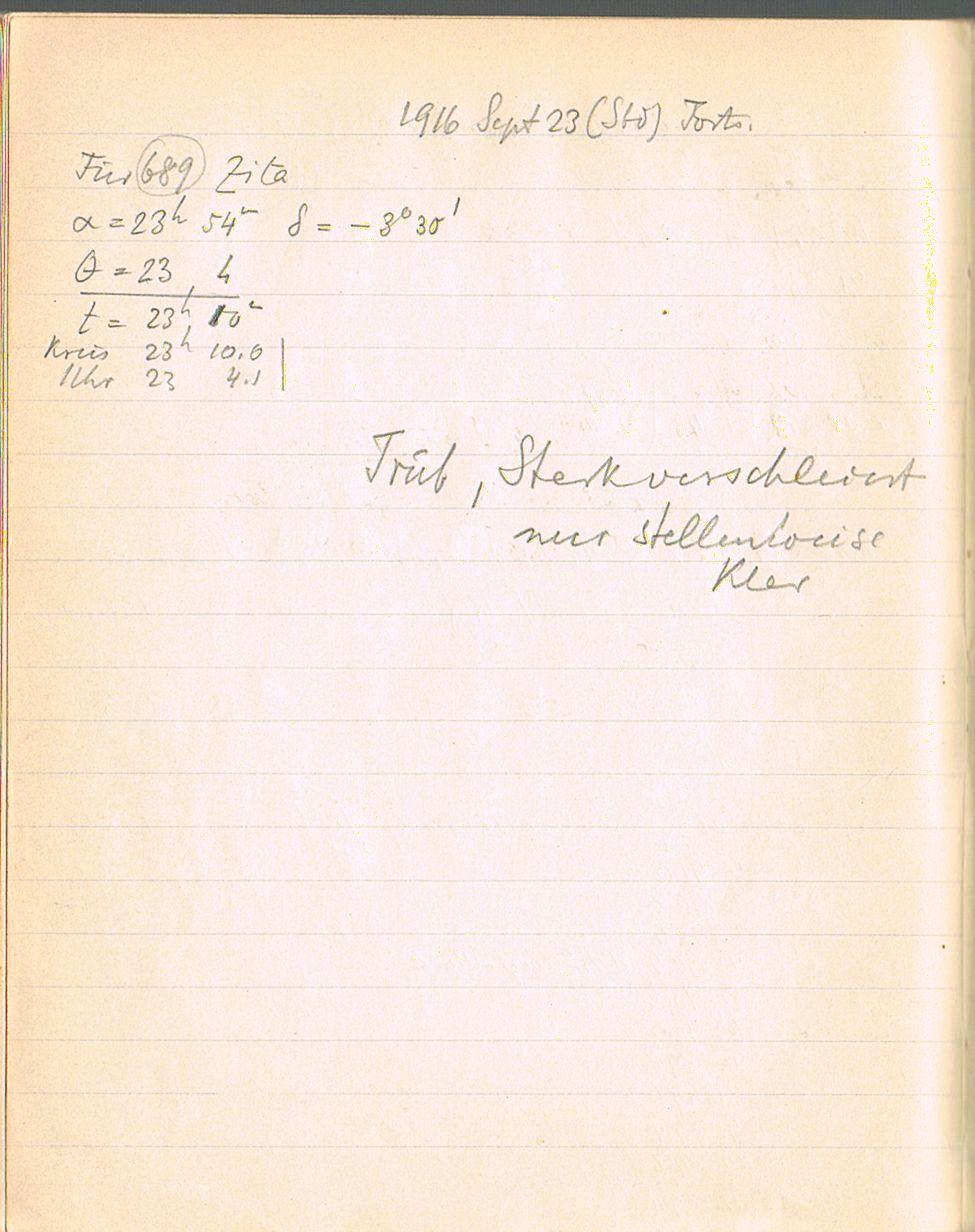 1916 Sept 23 (Std) Forts.
Für 689 Zita
α = 23h 54m δ = -3° 30'
θ = 23, 4
t = 23h 10m
Kreis 23h 10.0
Uhr 23 4.1
Trüb, Stark verschleiert
nur stellenweise
Klar